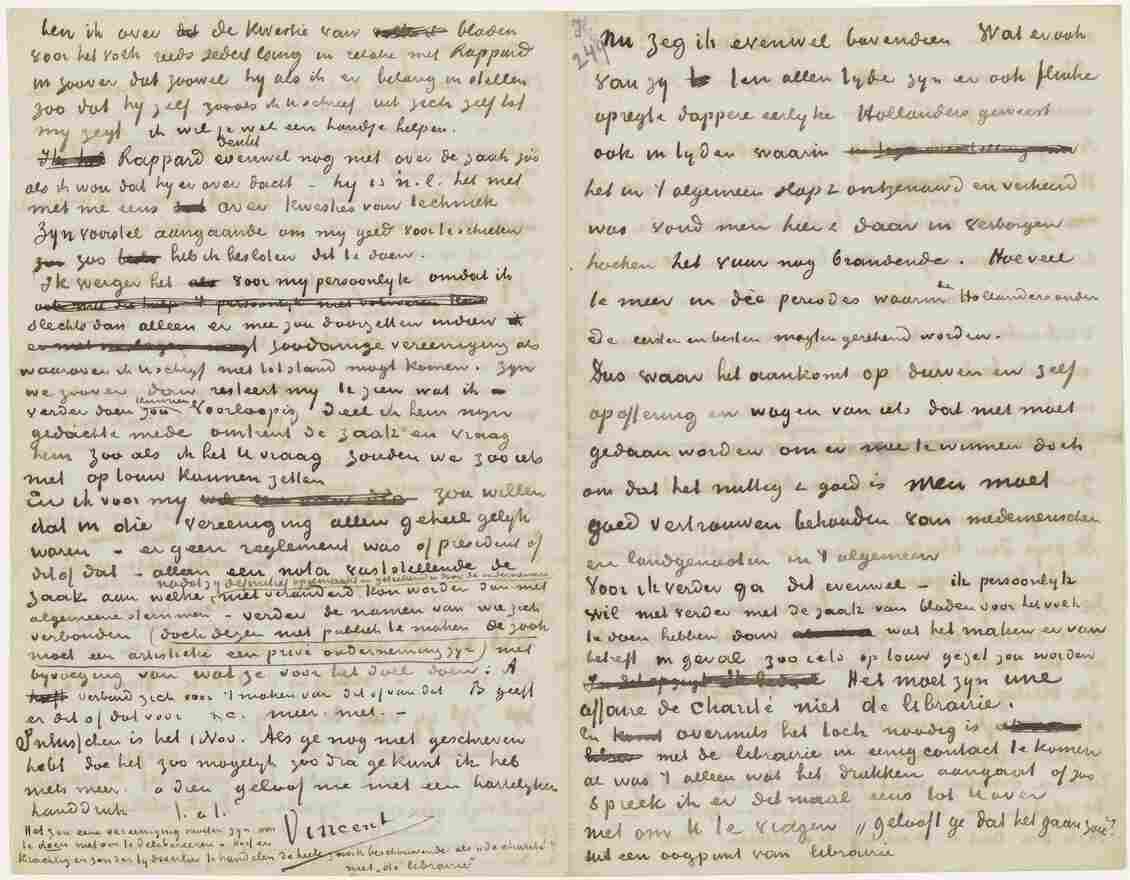 ben ik over de kwestie van bladen
voor het volk reeds sedert lang in relatie met Rappard
in zoover dat zoowel hy als ik er belang in stellen
zoo dat hy zelf zooals ik U schreef uit zich zelf tot
my zegt ik wil je wel een handje helpen.
Rappard denkt evenwel nog niet over de zaak zoo
als ik wou dat hy er over dacht – hy is n.l. het niet
met me eens over kwesties van techniek
Zyn voorstel aangaande om my geld voor te schieten
zoo heb ik besloten dit te doen.
Ik weiger het voor my persoonlyk omdat ik
slechts dan alleen er mee zou doorzetten indien
zoodanige vereeniging als
waarover ik U schryf niet tot stand mogt komen. Zyn
we zoover dan resteert my te zien wat ik –
verder doen kunnen zou Voorloopig deel ik hem myn
gedachte mede omtrent de zaak en vraag
hem zoo als ik het U vraag zouden we zoo iets
niet op touw kunnen zetten
En ik voor my zou willen
dat in die vereeniging allen geheel gelyk
waren – er geen reglement was of president of
dit of dat – alleen een nota vaststellende de
nadat zy definitief opgemaakt en geteekend door de ondernemers
zaak aan welke niet veranderd kon worden dan met
algemeene stemmen – verder de namen van wie zich
verbonden (doch dezen niet publiek te maken de zaak
moet een artistieke een privé onderneming zyn) met
byvoeging van wat ze voor het doel doen: A
verbind zich voor 't maken van dit of van dat B geeft
er dit of dat voor &c. meer niet –
Intusschen is het 1 Nov. Als ge nog niet geschreven
hebt doe het zoo mogelyk zoodra ge kunt ik heb
niets meer. adieu geloof me met een hartelyken
handdruk t. à t.
Vincent
Het zou eene vereeniging moeten zyn om
te doen niet om te deliberéren – kort en
krachtig en zonder tydverlies te handelen de heele zaak beschouwende als „de charité”
niet „de librairie”
249
Nu zeg ik evenwel bovendien Wat er ook
van zy ten allen tyde zyn er ook flinke
opregte dappere eerlyke Hollanders geweest
ook in tyden waarin
het in 't algemeen slap & ontzenuwd en verkeerd
was vond men hier & daar in verborgen
hoeken het vuur nog brandende. Hoeveel
te meer in die periodes waarin de Hollanders onder
de eersten en besten mogten gerekend worden.
Dus waar het aankomt op durven en zelf
opoffering en wagen van iets dat niet moet
gedaan worden om er mee te winnen doch
om dat het nuttig & goed is men moet
goed vertrouwen behouden van medemenschen
en landgenooten in 't algemeen
Voor ik verder ga dit evenwel – ik persoonlyk
wil niet verder met de zaak van bladen voor het volk
te doen hebben dan wat het maken er van
betreft in geval zoo iets op touw gezet zou worden
Het moet zyn une
affaire de charité niet de librairie.
En overmits het toch noodig is
met de librairie in eenig contact te komen
al was 't alleen wat het drukken aangaat of zoo
Spreek ik er ditmaal eens tot U over
niet om U te vragen „gelooft ge dat het gaan zou?”
uit een oogpunt van librairie